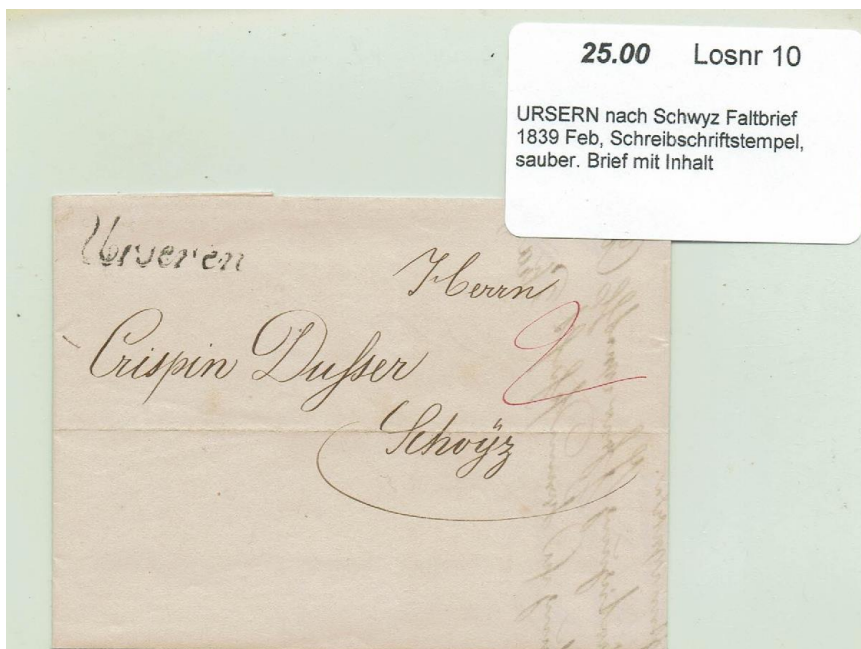 25.00 Losnr 10
URSERN nach Schwyz Faltbrief
1839 Feb, Schreibschriftstempel,
sauber. Brief mit Inhalt
Urseren
Herrn
2
Crispin Dusser
Schwÿz